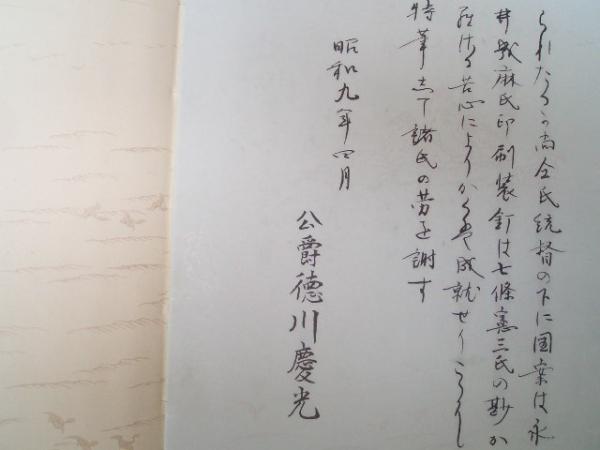 られたるか尚仝氏統督の下に図案は永
井幾麻氏印刷装釘は七條憲三氏の尠か
らさる苦心によりかくは成就せりこゝに
特筆して諸氏の労を謝す
昭和九年四月
公爵徳川慶光